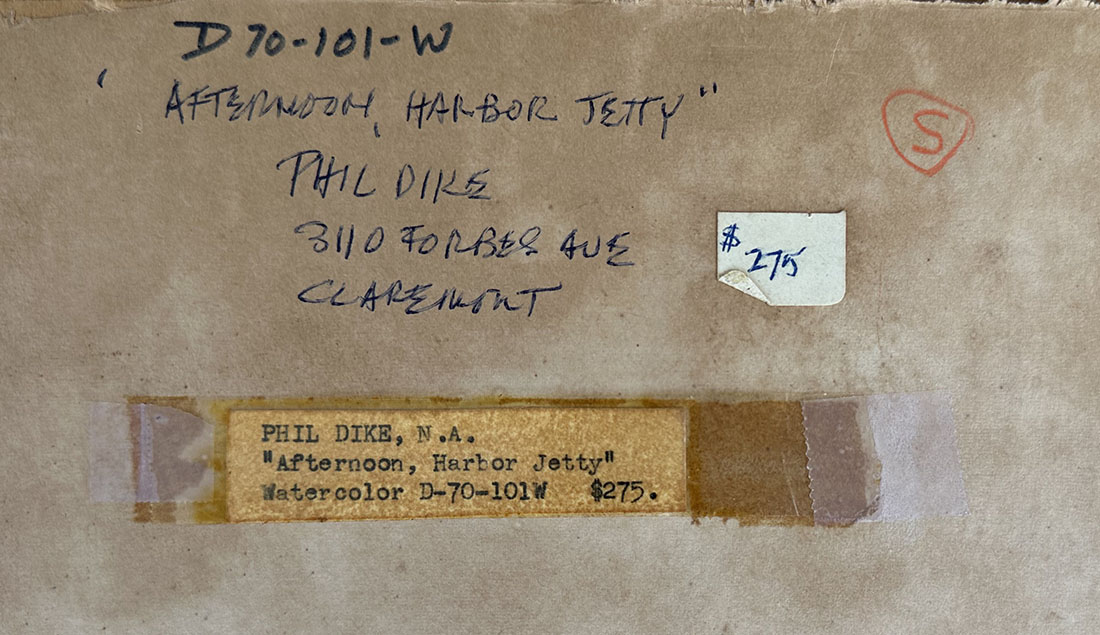 D 70-101-W
' AFTERNOON, HARBOR JETTY"
PHIL DIKE
3110 FORBES AVE
CLAREMONT
S
$
275
PHIL DIKE, N.A.
"Afternoon, Harbor Jetty"
Watercolor D-70-101W $275.